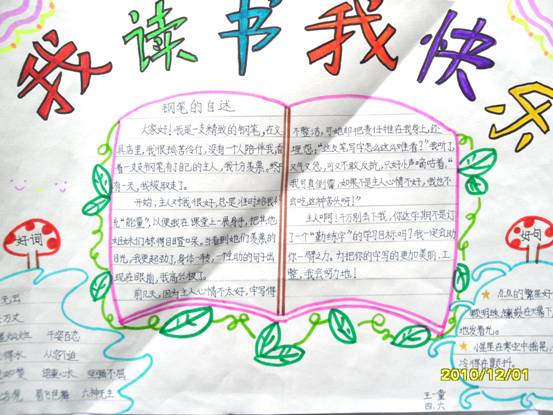 我读书我快乐
钢笔的自述
大家好！我是一支精致的钢笔，在文
具店里，我很孤苦伶仃，没有一个人陪伴我，
看一支支钢笔有了自己的主人，我十分羡慕，终
有一天，我被取走了。
开始，主人对我很好，总是准时给我
充"能量"，以便我在课堂上一展身手，把其他
姐妹们惊得目瞪口呆，当看到她们羡慕的
目光，我更起劲了，身体一扭，一个生动的句子出
现在眼前，我高兴极了。
前几天，因为主人心情不太好，字写得
不整洁，可她却把责任推在我身上，还
埋怨，"这支笔写字怎么这么难看？"我听了
又气又怨，可又不敢反抗，只好小声嘀咕着，"
我可真倒霉，如果不是主人心情不好，我也不
会吃这种苦头呀！"
主人啊！千万别丢下我，你这学期不是订
了一个"勤练字"的学习目标吗？我一定会助
你一臂之力，为把你的字写的更加美丽、工
整，我会努力地！
好词
千姿百态
从容不迫
六神无主
好句
点点的繁星好
地发着光。
2010/12/01
王一童
四.六